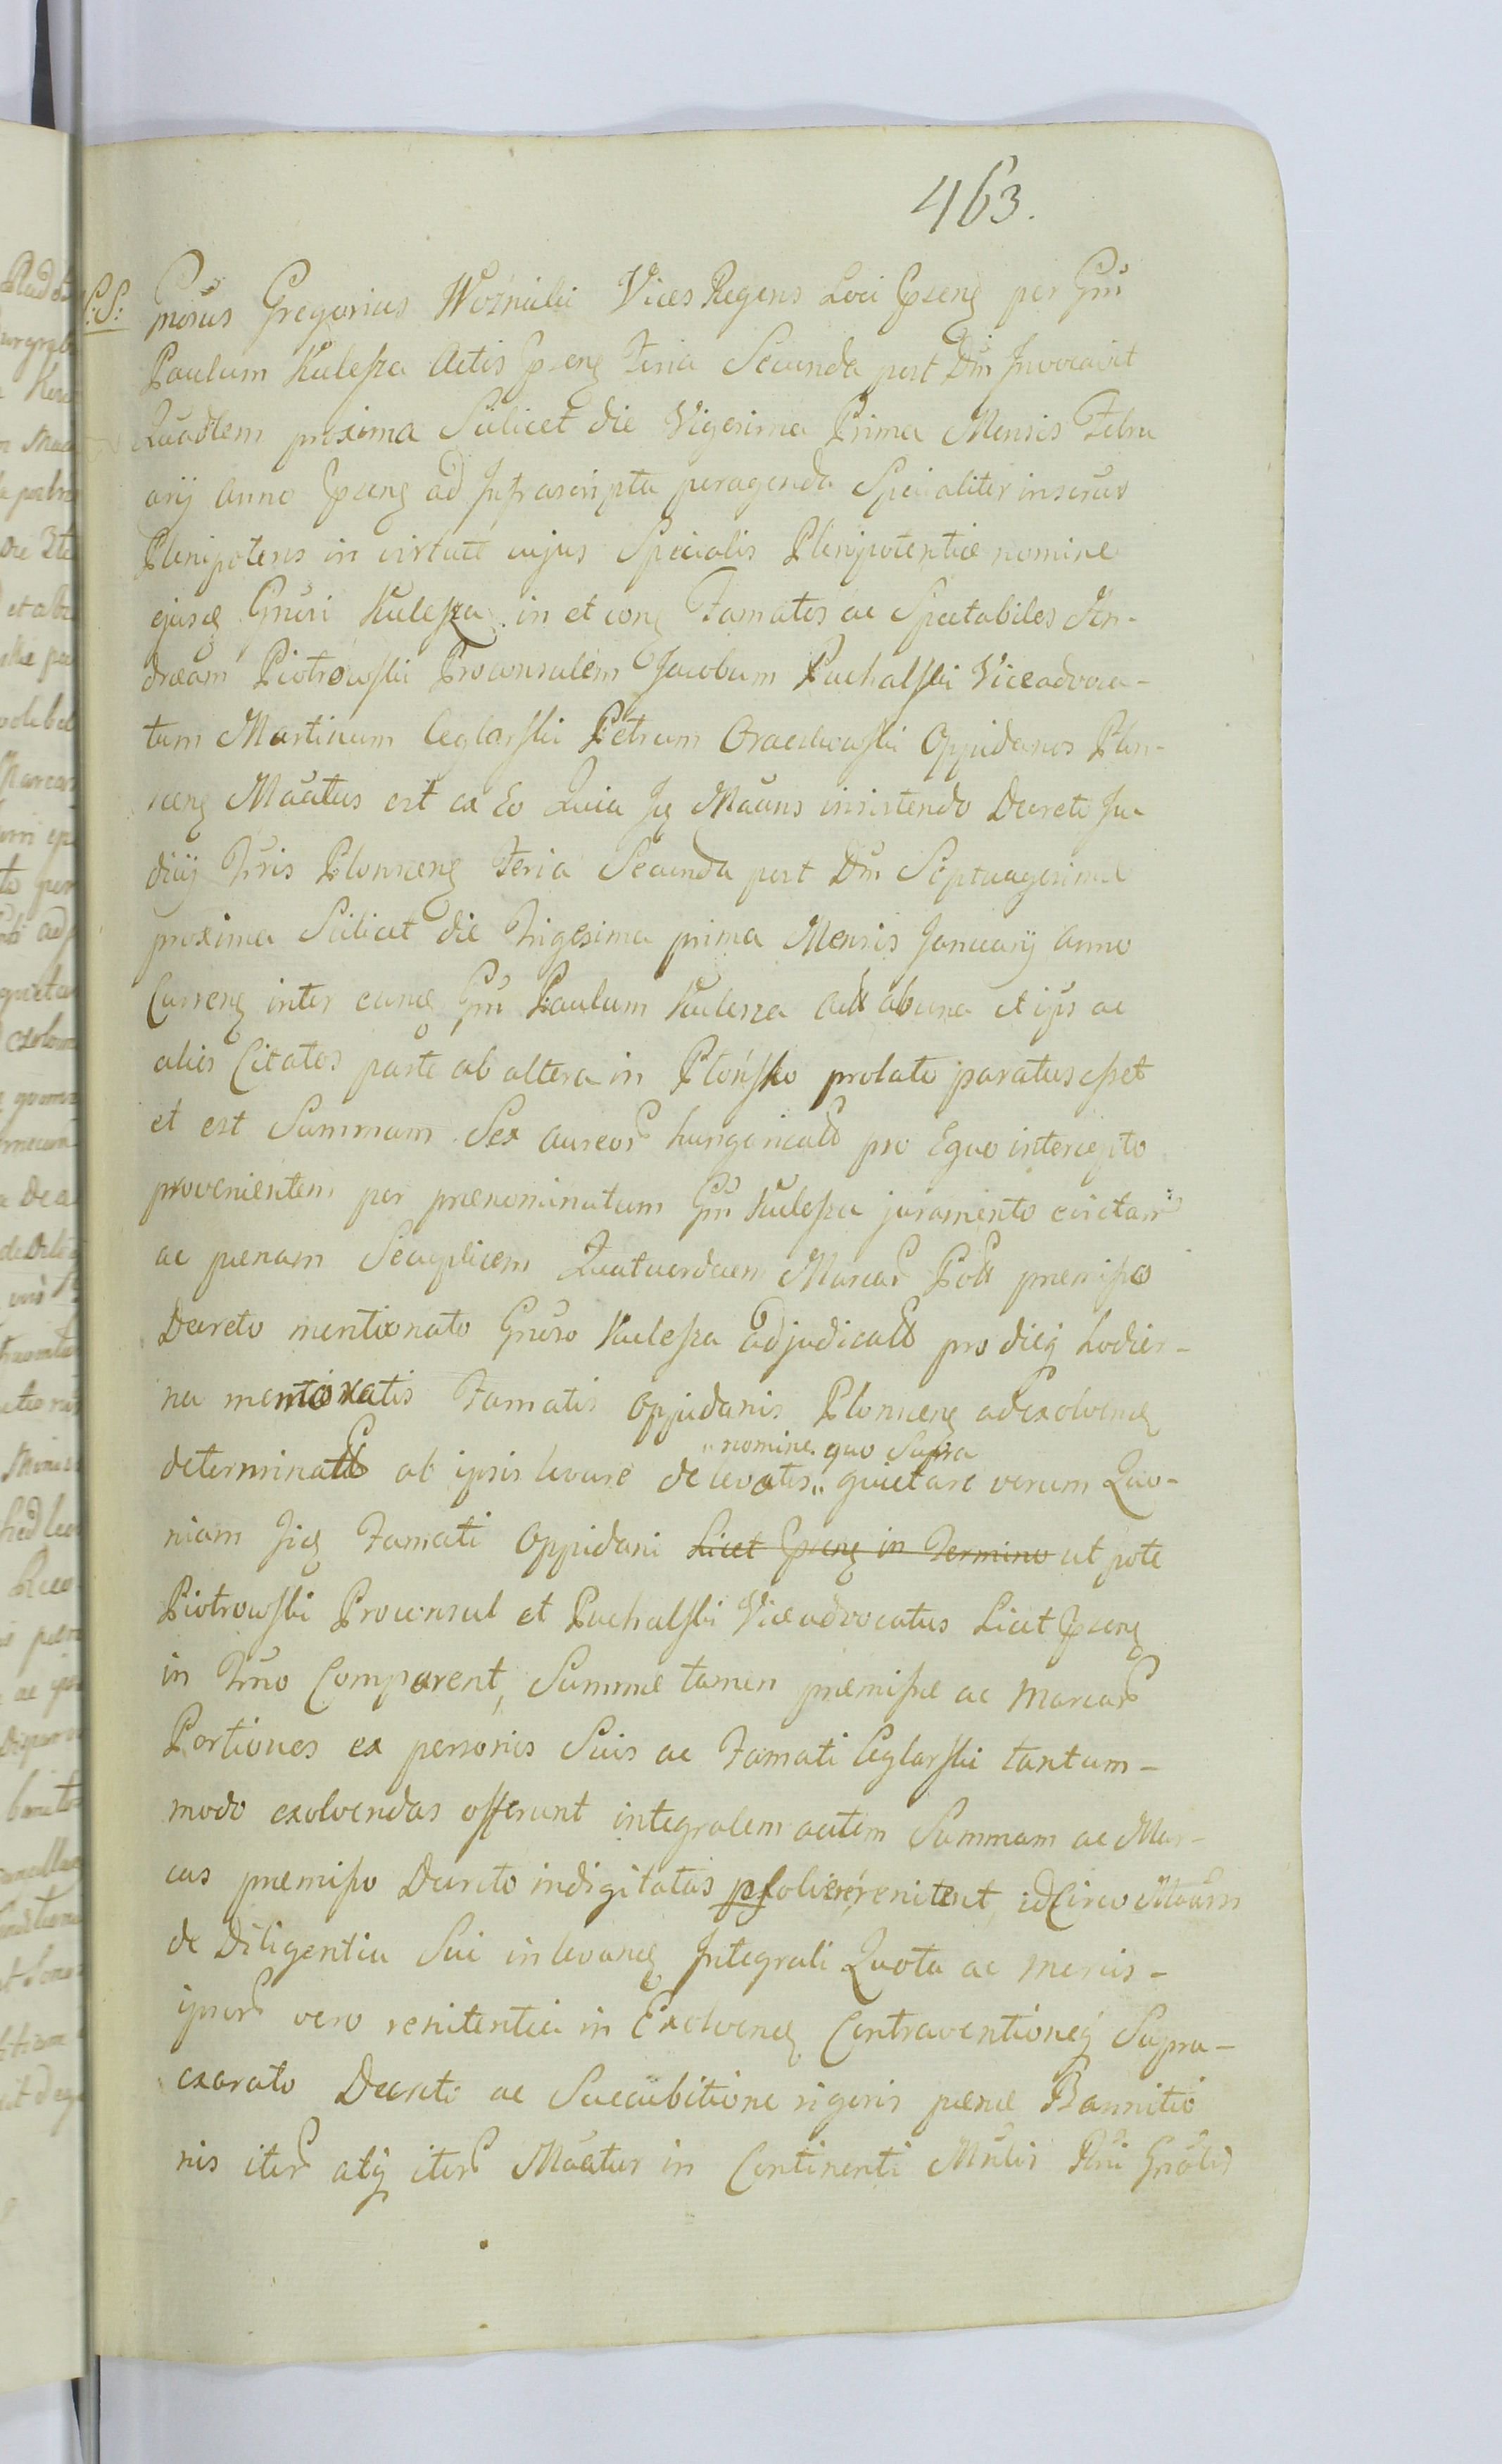 463.
:S: Gnosus Gregorius Woznicki Vices Regens Loci Psens per Gm
Paulum Kulesza Actis Psens Feria Secunda post Dm Invocavit
Quadlem proxima Scilicet die Vigesima Prima Mensis Febru
arij Anno Psens ad Infrascripta peragenda Specialiter inscrus
Plenipotens in virtute cujus Specialis Plenipotentiæ nomine
ejusd Gnosi Kulesza in et cons Famatos ac Spectabiles An-
dræam Piotrowski Proconsulem Jacobum Puchalski Viceadvoca-
tum Martinum Ceglarski Petrum Oraczewski Oppidanos Plon-
scens Mãatus est ex Eo Quia Is Mãans insistendo Decreto Ju
dicij Tris Plonscens Feria Secunda post Dm Septuagesimæ
proxima Scilicet die Trigesima prima Mensis January Anno
Currens inter eund Gm Paulum Kulesza Act ab una et ijs ac
alios Citatos parte ab altera in Płońsko prolato paratus esset
et est Summam Sex aureor hungarical pro Equo intercepto
provenientem per prænominatum Gm Kulesza juramento evictam
ac pænam Sexuplicem Quatuordecim Marcar Poll præmisso
Decreto mentionato Gnoso Kulesza adjudicatt pro dieq hodier-
na mentionatis Famatis Oppidanis Plonscens ad exolvend
determinatt ab ipsis levare de levatis „ quietare verum Quo-
„nomine quo Supra
niam Iid Famati Oppidani Licet Psens in Termino ut pote
Piotrowski Proconsul et Puchalski Viceadvocatus Licet Psens
in Trno Comparent, Summæ tamen præmissæ ac Marcar
Portiones ex personis Suis ac Famati Ceglarski tantum-
modo exolvendas offerunt integralem autem Summam ac Mar-
cas præmisso Decreto indigitatas renitent, idCirco Mãans
de Diligentia Sui in levand Integrali Quota ac Marcis-
ipsor vero renitentia in Exolvend Contraventioneq Supra-
exarato Decreto ac Succubitione rigoris pænæ Bannitio
nis iter atq iter Mãatur in Continenti Mnlis Rni Gnalis